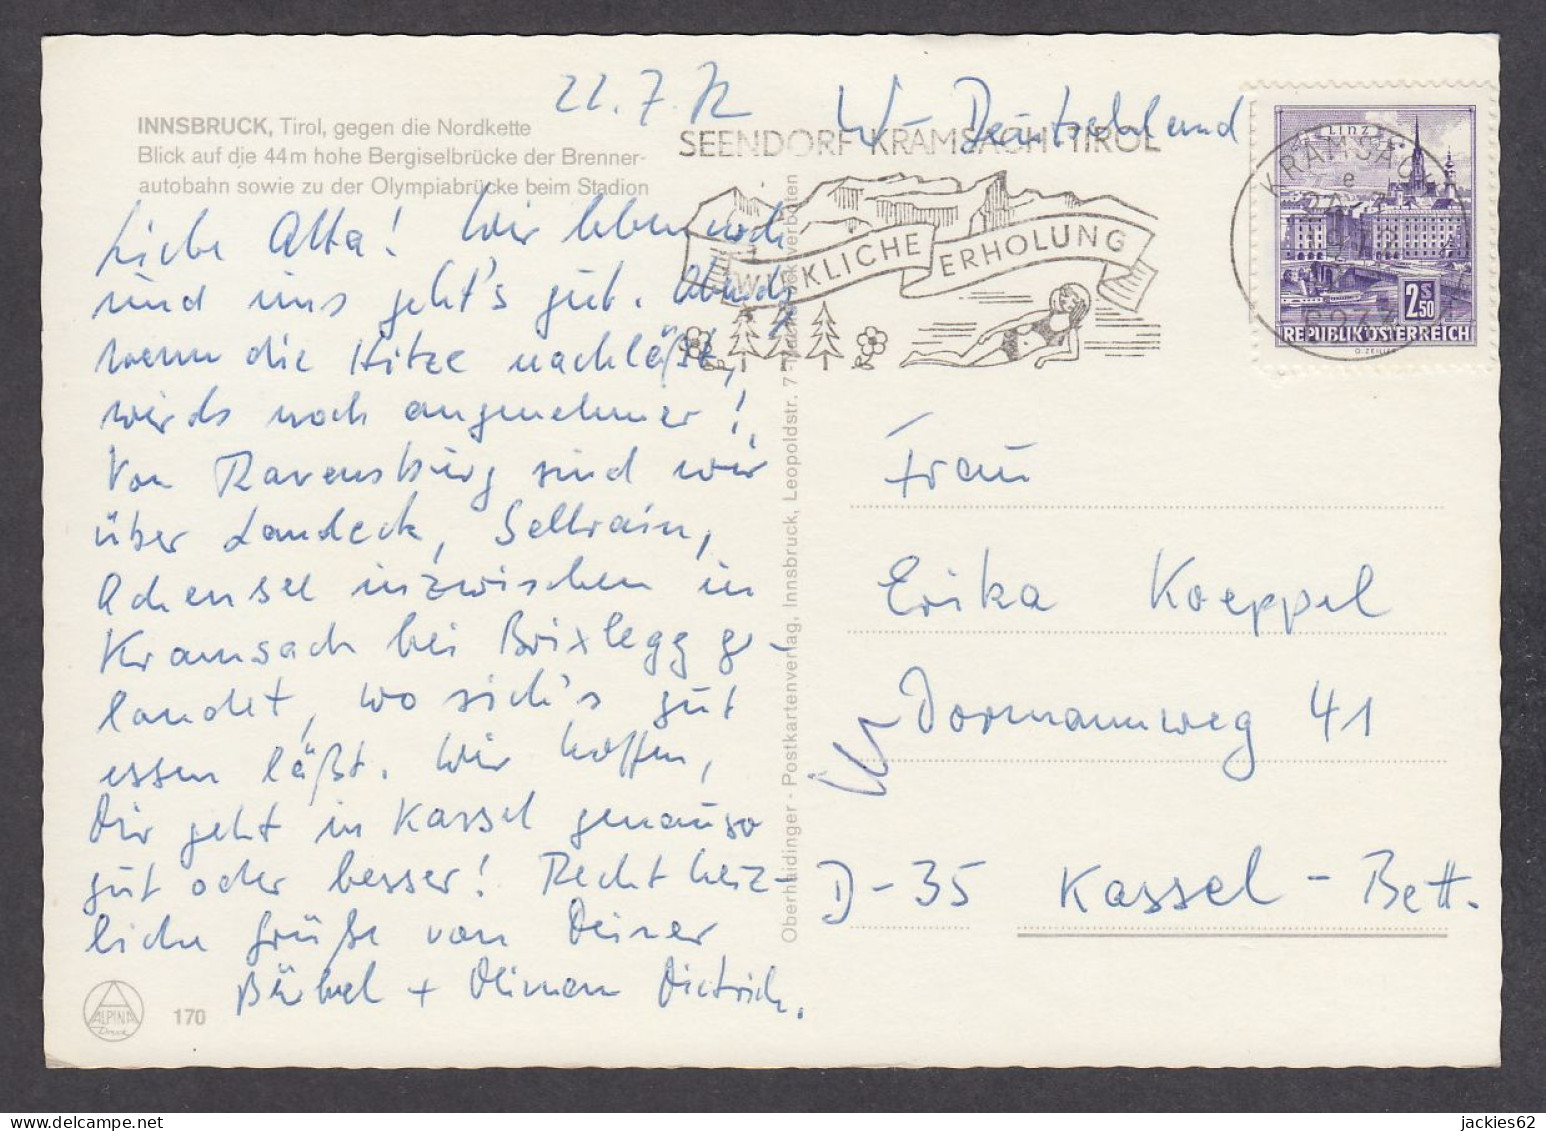 INNSBRUCK, Tirol, gegen die Nordkette
Blick auf die 44m hohe Bergiselbrücke der Brenner-
autobahn sowie zu der Olympiabrücke beim Stadion
22.7.72
Liebe Alta! Wir leben noch
und uns geht's gut. Abends
wenn die Hitze nachläßt,
wirds noch angenehmer!
Von Ravensburg sind wir
über Landeck, Sellrain,
Achensee inzwischen in
Kramsach bei Brixlegg ge-
landet, wo sich's gut
essen läßt. Wir hoffen,
Dir geht in Kassel genauso
gut oder besser! Recht herz-
liche Grüße von Deiner
Bärbel + Dietrich.
ALPINA
Druck
170
Oberhaidinger - Postkartenverlag, Innsbruck, Leopoldstr. 7 - verboten
W-Deutschland
SEENDORF KRAMSACH-TIROL
WIRKLICHE ERHOLUNG
KRAMSACH
6233
LINZ
2S50
REPUBLIK ÖSTERREICH
G. ZEILLER
Frau
Erika Koeppel
Dormannweg 41
D-35 Kassel-Bett.
jackies62